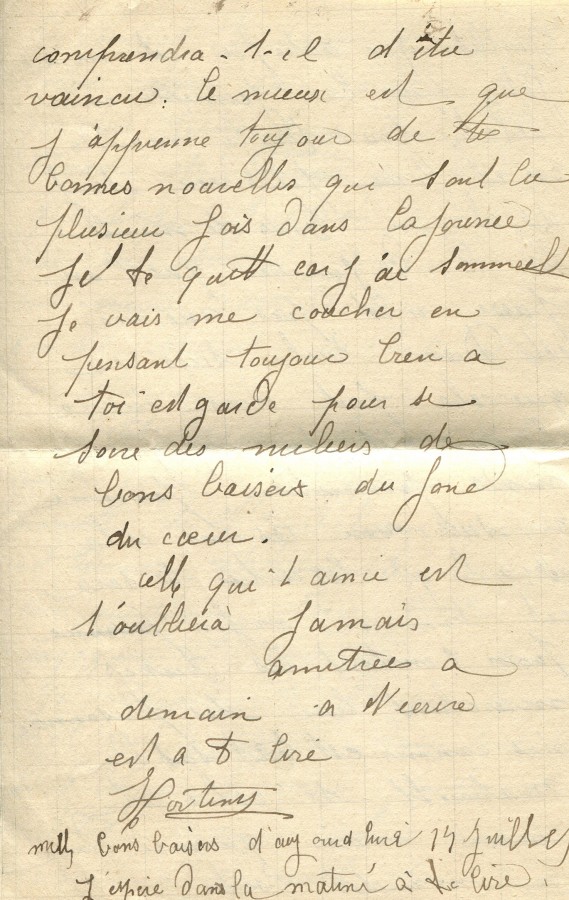 comprendra-t-il d'être
vaincu. le mieux est que
j'apprenne toujour de te
bonnes nouvelles qui sont lu
plusieur fois dans la journée
Je te quitt car j'ai sommeil
Je vais me coucher en
pensant toujour bien a
toi est garde pour se
soire des miliers de
bons baisers du fone
du cœur.
celle qui t'amie est
t'oublierà Jamais
amitiees a
demain a t'ecrire
est a te lire
Hortense
mille bons baisers d'aujourdhui Juillet
J'espere dans la matiné à te lire.